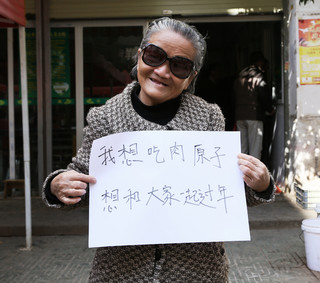 我想吃肉原子
想和大家一起过年